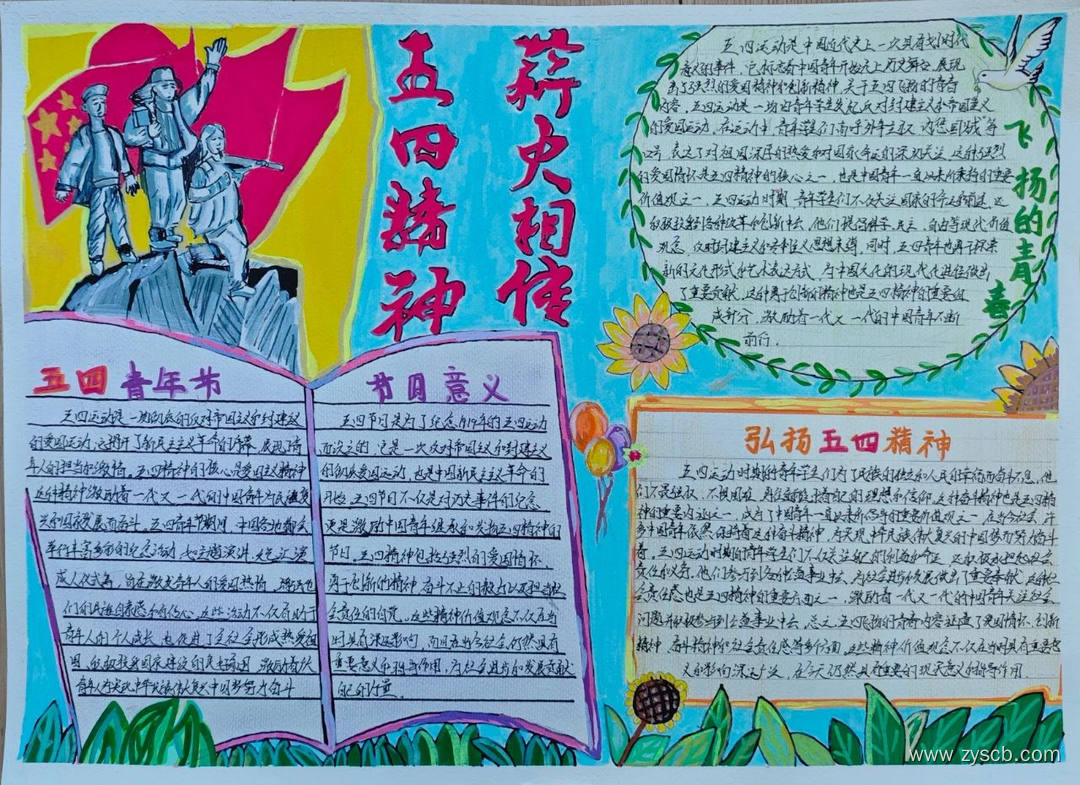 薪火相传
五四精神
五四青年节
五四运动是一场彻底的反对帝国主义和封建主义
的爱国运动,这推开了新民主主义革命的序幕,展现了青
年人的担当和激情。五四精神的核心是爱国主义精神
这种精神激励着一代又一代的中国青年为民族复
兴和国家发展而奋斗。五四青年节期间,中国各地都会
举行丰富多彩的纪念活动,如主题演讲、文艺汇演
成人仪式等,旨在激发青年人的爱国热情,
们的民族自豪感和自信心。这些活动不仅有助于
青年人的个人成长,也促进了全社会形成热爱祖
国、积极投身国家建设的良好氛围,激励着
青年人为实现中华民族伟大复兴中国梦努力奋斗
节日意义
五四节日是为了纪念1919年的五四运动
而设立的,它是一次反对帝国主义和封建主义
的彻底爱国运动,也是中国新民主主义革命的
开始。五四节日不仅是对历史事件的纪念,
更是激励中国青年继承和发扬五四精神的
节日。五四精神包括强烈的爱国情怀、
勇于创新的精神、奋斗不止的毅力以及担当社
会责任的自觉。这些精神价值观念不仅在当
时具有深远影响,而且在当今社会仍然具有
重要意义和指导作用,为社会进步和发展贡献
自己的力量。
五四运动是中国近代史上一次具有划时代
意义的事件,它标志着中国青年开始走上历史舞台,展现
出了强烈的爱国精神和创新精神。关于五四飞扬的青春
内容,五四运动是一场由青年学生发起反对封建主义和帝国主义
的爱国运动。在运动中,青年学生们高呼“外争主权,内惩国贼”等
口号,表达了对祖国深厚的热爱和对国家命运的深切关注。这种强烈
的爱国情怀是五四精神的核心之一,也是中国青年一直以来所秉持的重要
价值观之一。五四运动时期,青年学生们不仅关注国家的命运和前途,还
积极投身到各种改革和创新中去。他们提倡科学、民主、自由等现代价值
观念,反对封建主义和专制主义思想束缚。同时,五四青年也勇于探索
新的文化形式和艺术表达方式,为中国文化的现代化进程做出
了重要贡献。这种勇于创新的精神也是五四精神的重要组
成部分,激励着一代又一代的中国青年不断
前行。
飞扬的青春
弘扬五四精神
五四运动时期的青年学生们为了民族的独立和人民的幸福而奋斗不息,他
们不畏强权、不惧困难,
神的重要内涵之一,成为了中国青年一直以来所倡导的重要价值观之一。在当今社会,许
多中国青年依然保持着这种奋斗精神,为实现中华民族伟大复兴的中国梦而努力奋斗
着。五四运动时期的青年学生们不仅关注自己的利益和命运,还积极承担起社会
责任和义务。他们参与到各种公益事业中去,为社会进步和发展做出了重要贡献。这种社
会责任感也是五四精神的重要方面之一,激励着一代又一代的中国青年关注社会
问题并积极参与到公益事业中去。总之,五四飞扬的青春内容涵盖了爱国情怀、创新
精神、奋斗精神和社会责任感等多个方面。这些精神价值观念不仅在当时具有重要意
义和影响深远广泛,在今天仍然具有重要的现实意义和指导作用。
www.zyscb.com